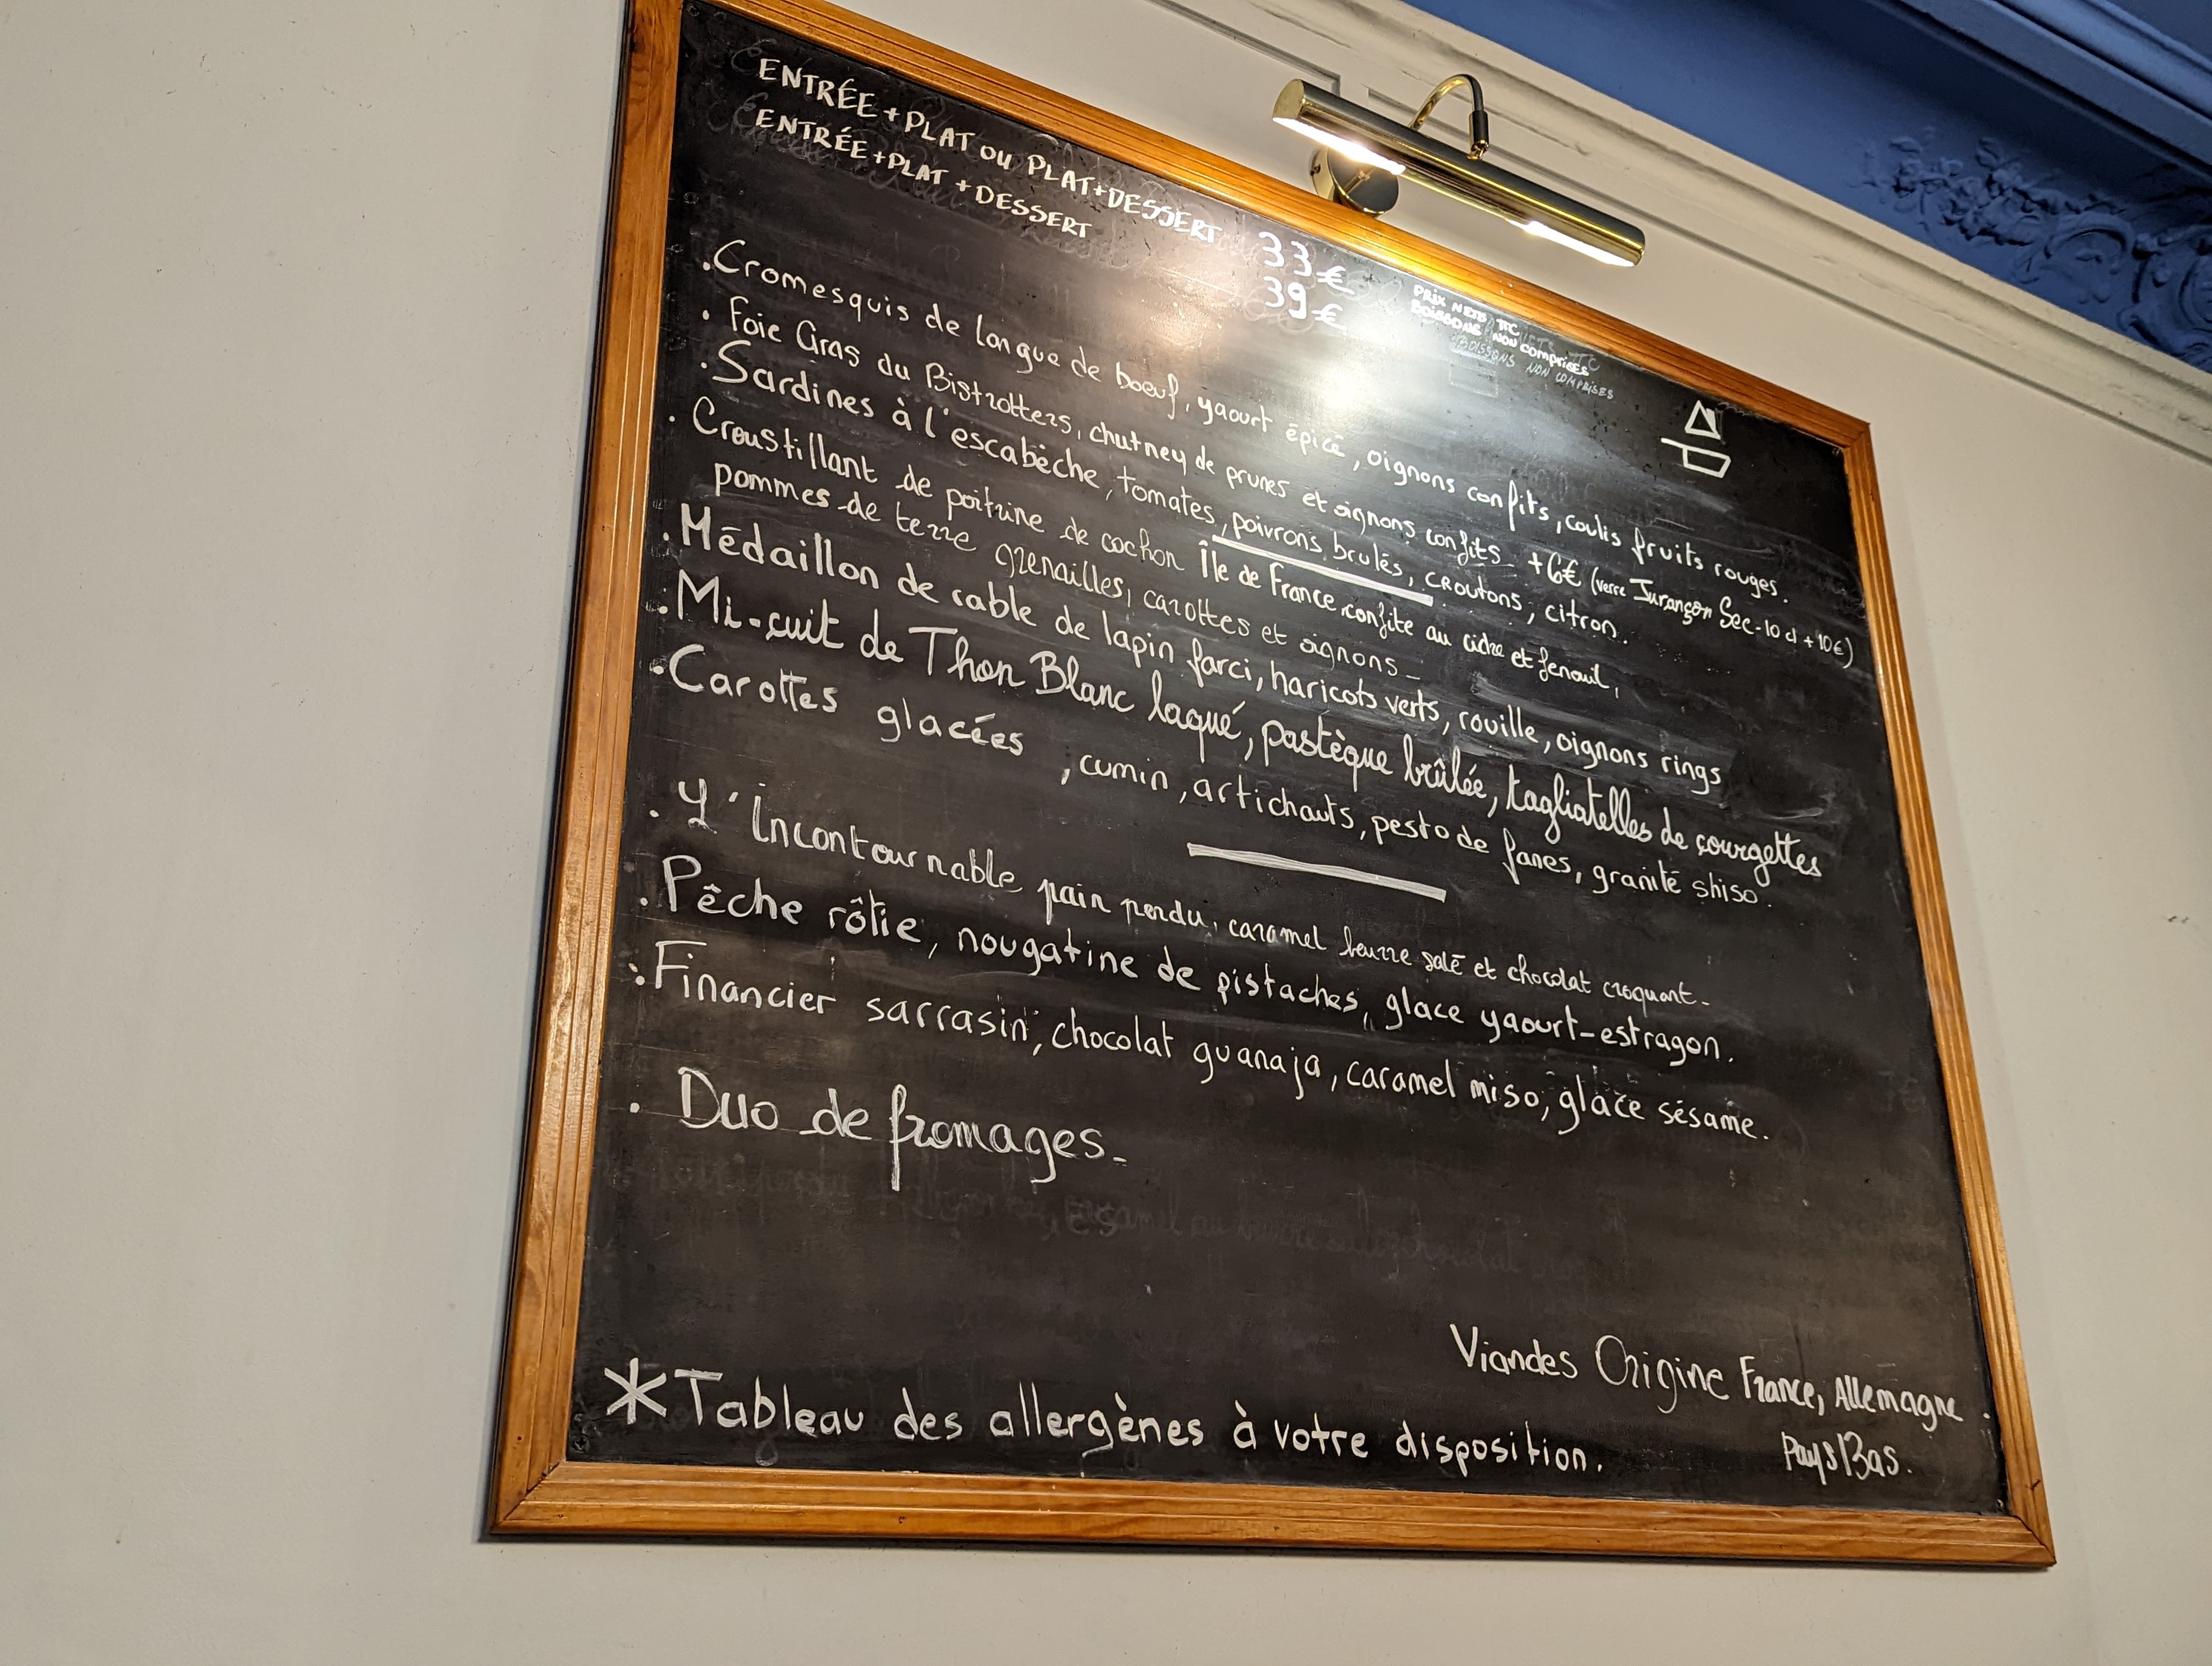 ENTRÉE + PLAT OU PLAT+DESSERT 33€
ENTRÉE+PLAT + DESSERT 39€
PRIX NETS TTC
BOISSONS NON COMPRISES
BOISSONS NON COMPRISES
.Cromesquis de langue de boeuf, yaourt épicé, oignons confits, coulis fruits rouges.
. Foie Gras du Bistrotters, chutney de prunes et oignons confits +6€ (verre Jurançon Sec-10 cl +10€)
.Sardines à l'escabèche, tomates, poivrons brulés, croutons, citron.
. Croustillant de poitrine de cochon Île de France confite au cidre et fenouil,
pommes de terre grenailles, carottes et oignons_
.Médaillon de rable de lapin farci, haricots verts, rouille, oignons rings
.Mi-cuit de Thon Blanc laqué, pastèque brûlée, tagliatelles de courgettes
.Carottes glacées, cumin, artichauts, pesto de fanes, granité shiso.
. L'incontournable pain perdu, caramel beurre salé et chocolat croquant-
. Pêche rôtie, nougatine de pistaches, glace yaourt-estragon.
. Financier sarrasin, chocolat guanaja, caramel miso, glace sésame.
. Duo de fromages_
Viandes Origine France, Allemagne.
Pays Bas.
*Tableau des allergènes à votre disposition.